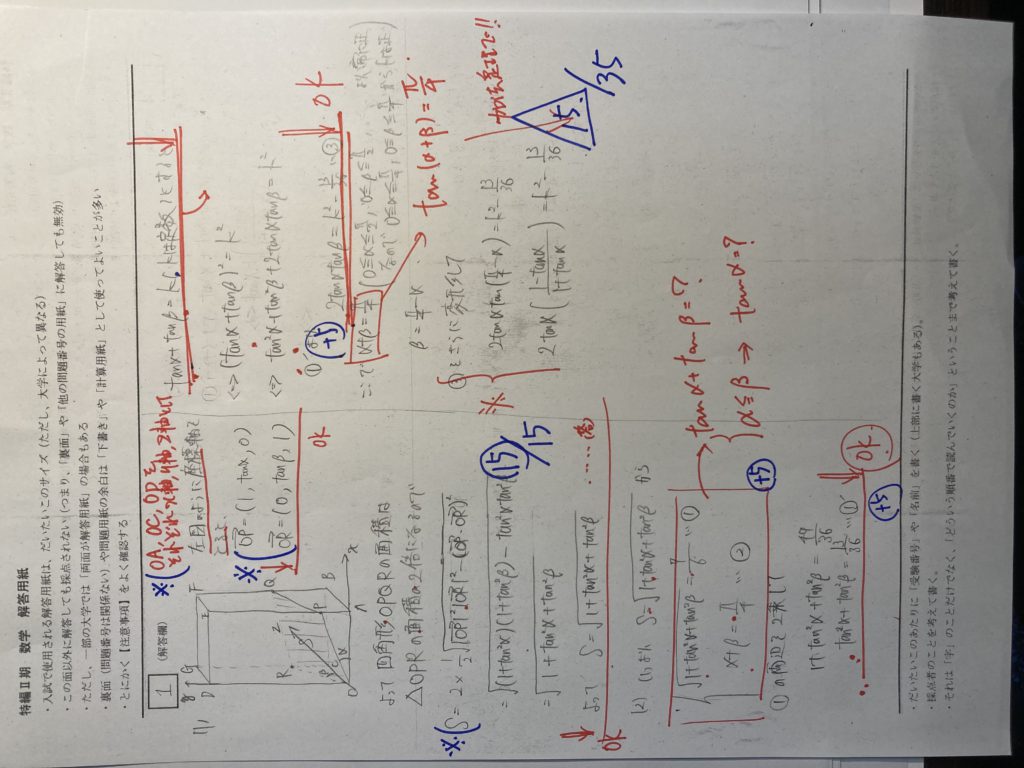 特編Ⅱ期 数学 解答用紙
・入試で使用される解答用紙は、だいたいこのサイズ(ただし、大学によって異なる)
・この面以外に解答しても採点されない(つまり、「裏面」や「他の問題番号の用紙」に解答しても無効)
・ただし、一部の大学では「両面が解答用紙」の場合もある
・裏面(問題番号は関係ない)や問題用紙の余白は「下書き」や「計算用紙」として使ってよいことが多い
・とにかく【注意事項】をよく確認する
1
(解答欄)
(1)
D G F
R Z Q
P B
O A x
※(OA, OC, ODを
それぞれx軸, y軸, z軸として
左図のように座標軸を
とると
※( OP = (1, tanα, 0)
OR = (0, tanβ, 1)
OK
よって 四角形OPQRの面積は
△OPRの面積の2倍になるので
※( S = 2×1/2 √|OP|²|OR|² - (OP・OR)²
= √(1+tan²α)(1+tan²β) - tan²α tan²β
15/15
= √1+tan²α+tan²β
よって S = √1+tan²α+tan²β
OK
(2) (1)より S = √1+tan²α+tan²β から
√1+tan²α+tan²β = 7/6 …①
α+β = π/4 …②
tanα+tanβ=?
α≦β → tanα=?
+5
①の両辺を2乗して
1+tan²α+tan²β = 49/36
tan²α+tan²β = 13/36 …①´
OK
+5
tanα+tanβ = k(kは定数)とすると
<=> (tanα+tanβ)² = k²
<=> tan²α+tan²β+2tanαtanβ = k²
①´より
+5
2tanαtanβ = k² - 13/36 …③
OK
ここで α+β = π/4
tan(α+β) = π/4
β = π/4 - α
③をさらに変形して
※ 2tanα tan(π/4 - α) = k² - 13/36
2tanα (1-tanα / 1+tanα) = k² - 13/36
加法定理で!!
15/35
・だいたいこのあたりに「受験番号」や「名前」を書く(上部に書く大学もある)。
・採点者のことを考えて書く。
・それは「字」のことだけでなく、「どういう順番で読んでいくのか」ということまで考えて書く。